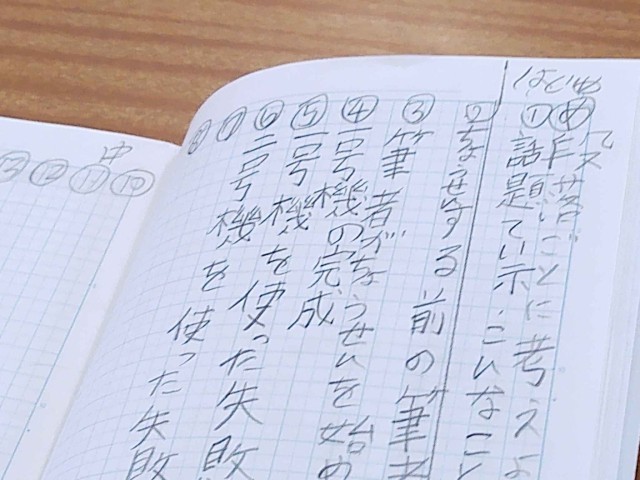 はじめ
め 段落ごとに考えよ
① 話題てい示 こんなこと
② ちょうせんする前の筆者
③ 筆者がちょうせんを始め
④ 一号機の完成
⑤ 一号機を使った失敗
⑥ 二号機を使った失敗
⑦
⑧
中
⑩
⑪
⑫
⑬